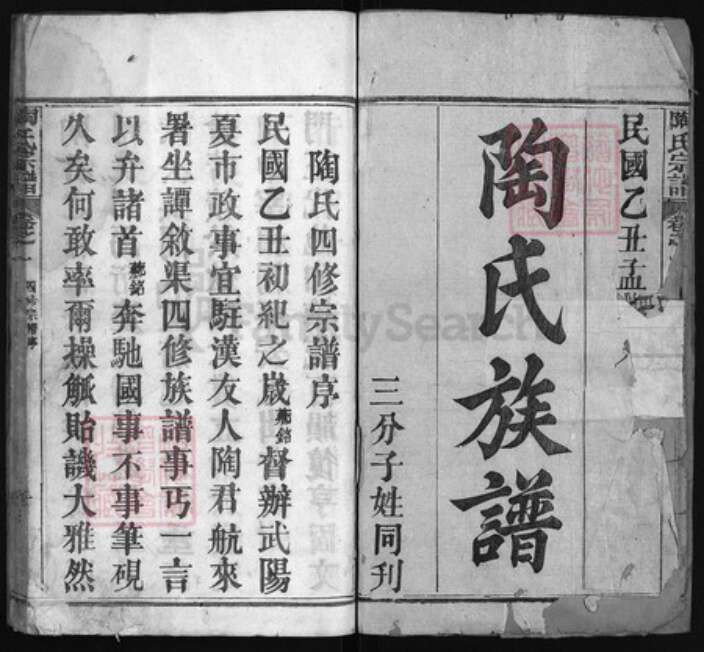 陶氏宗譜
民國乙丑孟
陶氏族譜
三分子姓同刊
陶氏四修宗譜序
民國乙丑初紀之歲蕘銘督辦武陽
夏市政事宜駐漢友人陶君航來
署坐譚敘渠四修族譜事丐一言
以弁諸首蕘銘奔馳國事不事筆硯
久矣何敢率爾操觚貽譏大雅然
卷之一
FamilySearch